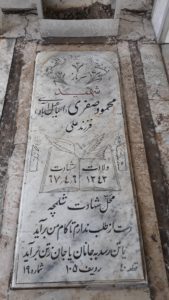 شهید
محمود صفری
فرزند علی
ولادت شهادت
۱۳۴۳ ۶۷،۴،۶
محل شهادت شلمچه
دست از طلب ندارم تا کام من برآید
یا تن رسد به جانان یا جان ز تن برآید
قطعه ردیف ۱۰۵ شماره ۱۹